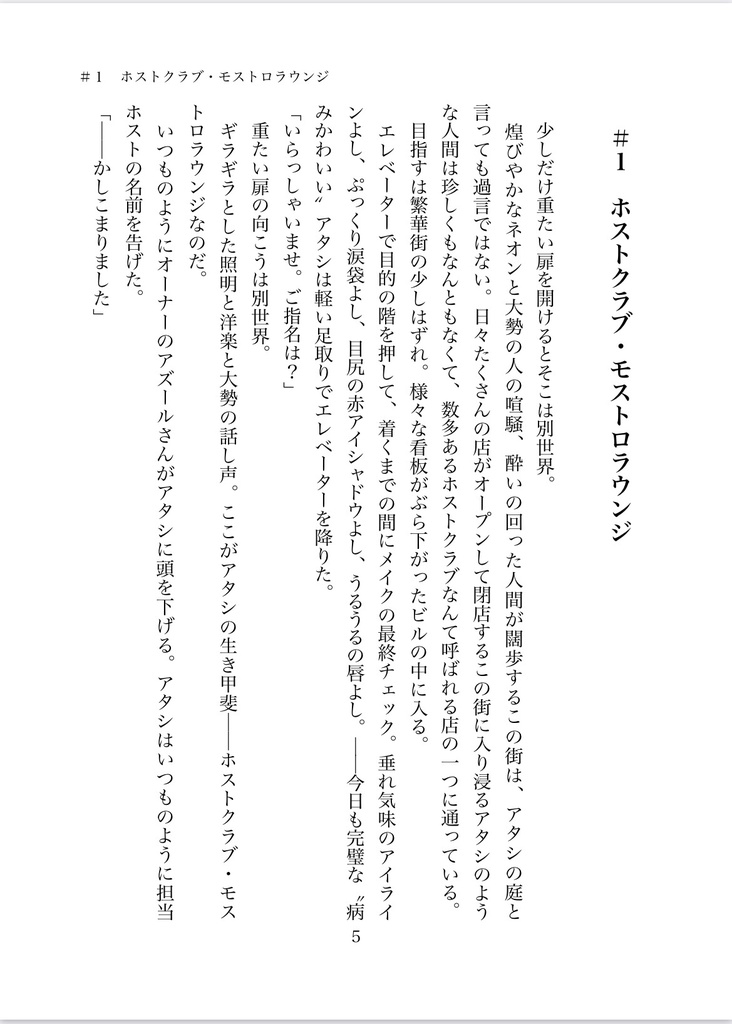 ＃1　ホストクラブ・モストロラウンジ
＃1　ホストクラブ・モストロラウンジ
少しだけ重たい扉を開けるとそこは別世界。
煌びやかなネオンと大勢の人の喧騒、酔いの回った人間が闊歩するこの街は、アタシの庭と
言っても過言ではない。日々たくさんの店がオープンして閉店するこの街に入り浸るアタシのよう
な人間は珍しくもなんともなくて、数多あるホストクラブなんて呼ばれる店の一つに通っている。
目指すは繁華街の少しはずれ。様々な看板がぶら下がったビルの中に入る。
エレベーターで目的の階を押して、着くまでの間にメイクの最終チェック。垂れ気味のアイライ
ンよし、ぷっくり涙袋よし、目尻の赤アイシャドウよし、うるうるの唇よし。――今日も完璧な〝病
みかわいい〟アタシは軽い足取りでエレベーターを降りた。
「いらっしゃいませ。ご指名は？」
重たい扉の向こうは別世界。
ギラギラとした照明と洋楽と大勢の話し声。ここがアタシの生き甲斐――ホストクラブ・モス
トロラウンジなのだ。
いつものようにオーナーのアズールさんがアタシに頭を下げる。アタシはいつものように担当
ホストの名前を告げた。
「――かしこまりました」
5